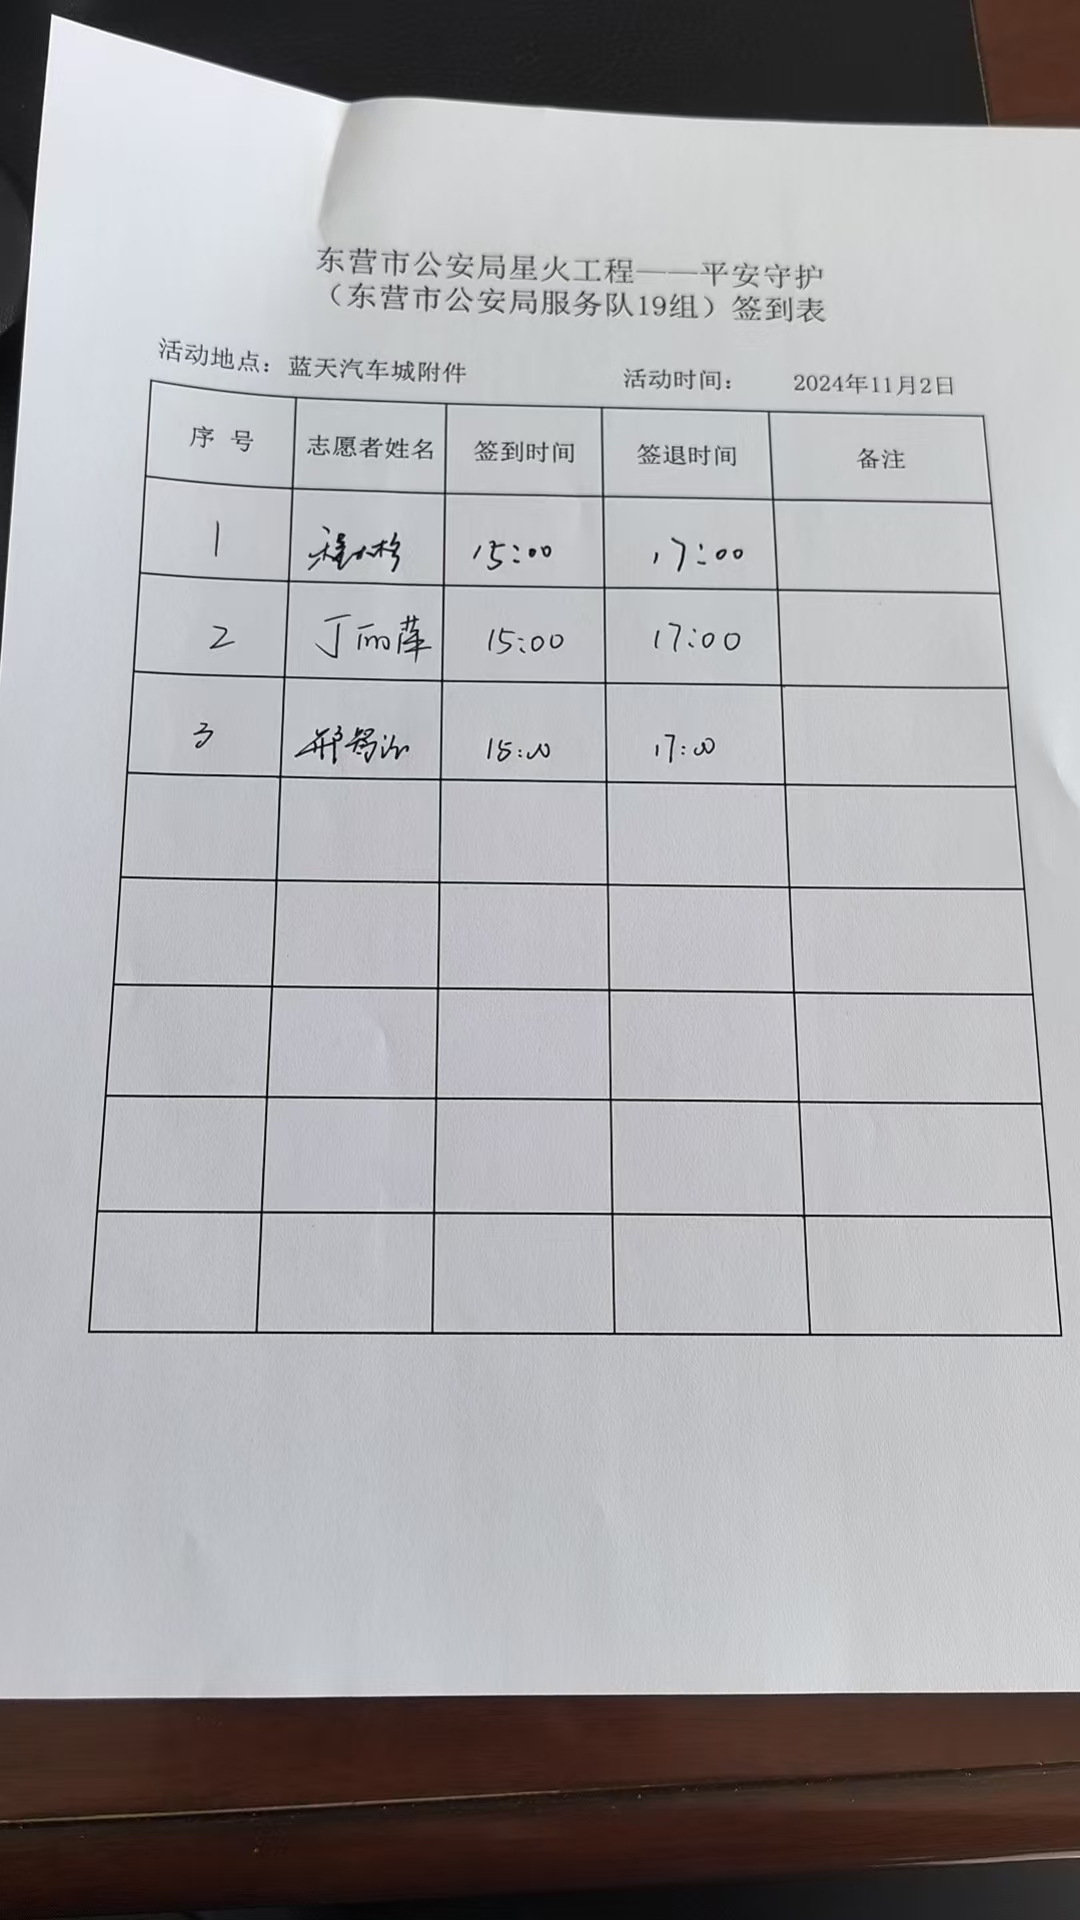 东营市公安局星火工程——平安守护
（东营市公安局服务队19组）签到表
活动地点：蓝天汽车城附件 活动时间： 2024年11月2日
序 号 志愿者姓名 签到时间 签退时间 备注
1 15:00 17:00
2 丁丽萍 15:00 17:00
3 15:00 17:00